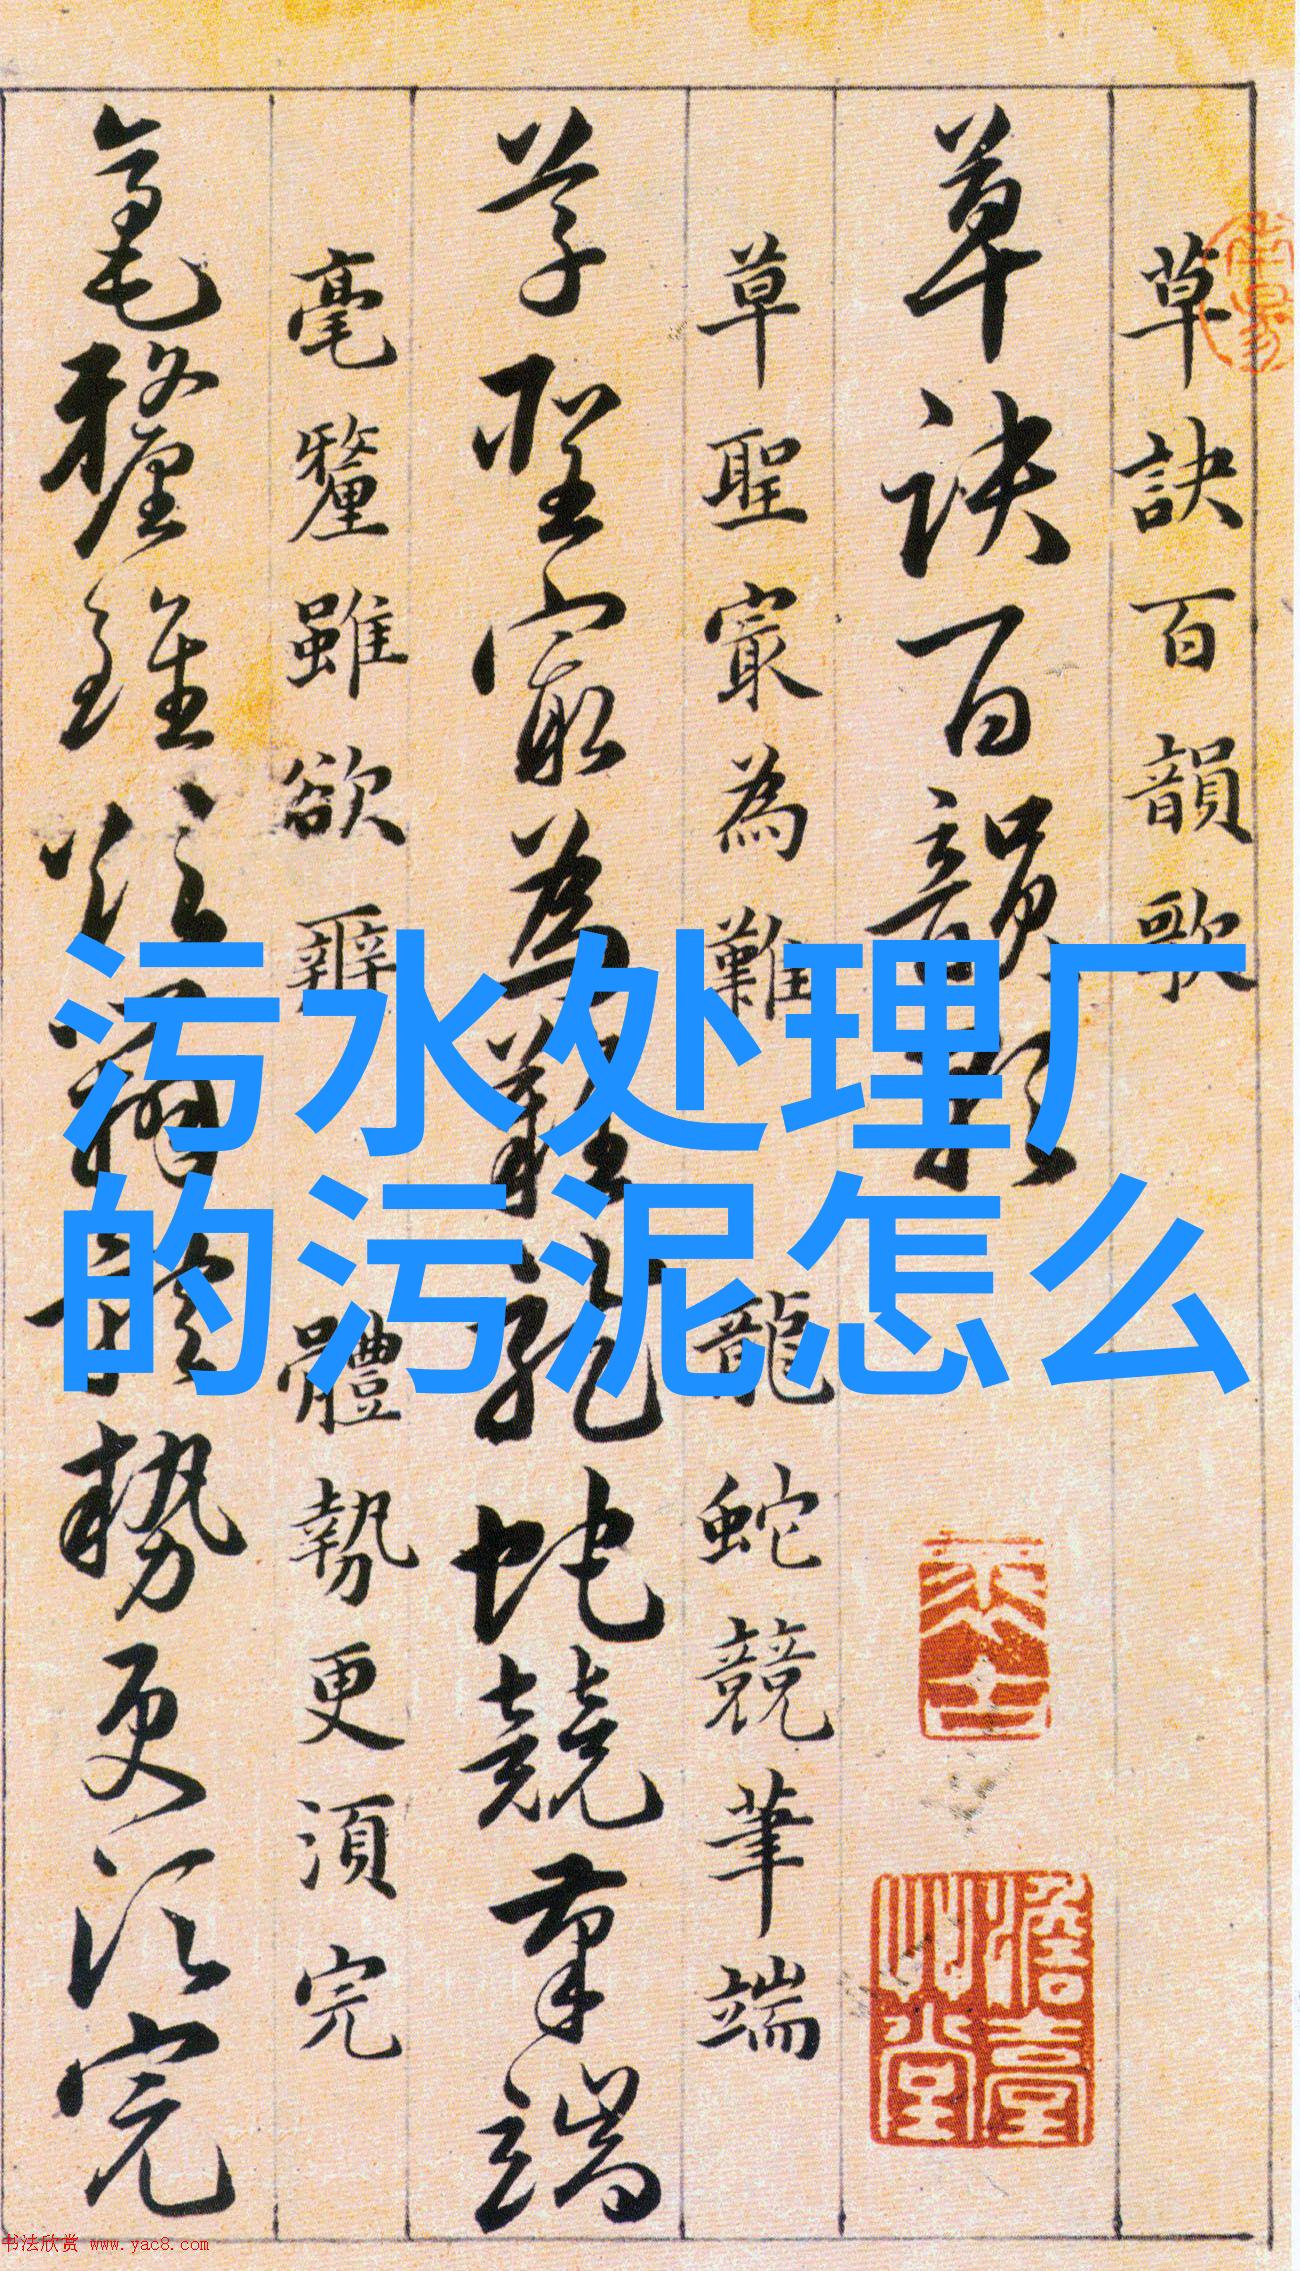 草訣百韻歌
草诀百韻歌
草聖寂為難 龍蛇競筆端
草聖寂为難龍蛇競筆端
毫釐雖欲辨 體勢更須完
毫釐雖欲辨體勢更須完
污水处理厂
的污泥怎么
书法欣赏 www.yac8.com